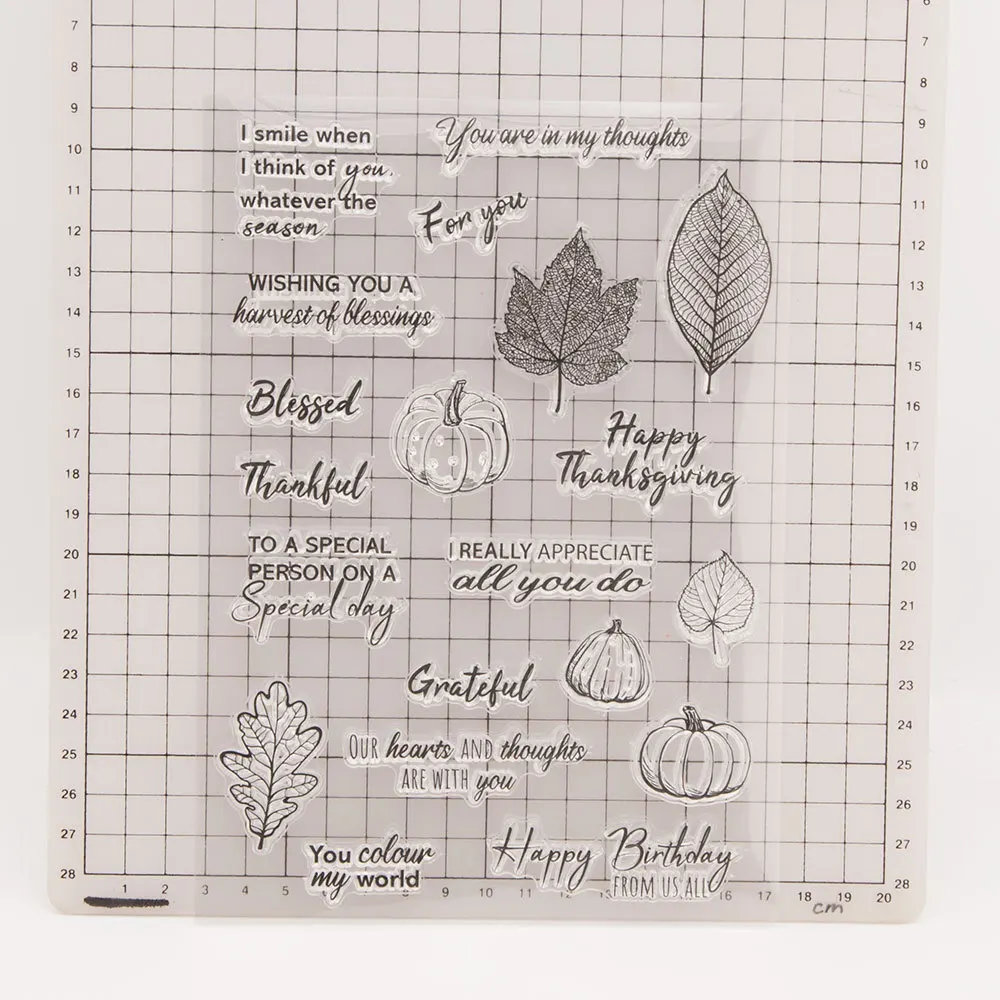 I smile when
I think of you,
whatever the
season
You are in my thoughts
For you
WISHING YOU A
harvest of blessings
Blessed
Happy
Thanksgiving
Thankful
TO A SPECIAL
PERSON ON A
Special day
I REALLY APPRECIATE
all you do
Grateful
OUR hearts AND thoughts
ARE WITH you
You colour
my world
Happy Birthday
FROM US ALL
7
8
9
10
11
12
13
14
15
16
17
18
19
20
21
22
23
24
25
26
27
28
6
7
8
9
10
11
12
13
14
15
16
17
18
19
20
21
22
23
24
25
26
27
28
1 2 3 4 5 6 7 8 9 10 11 12 13 14 15 16 17 18 19 20
cm